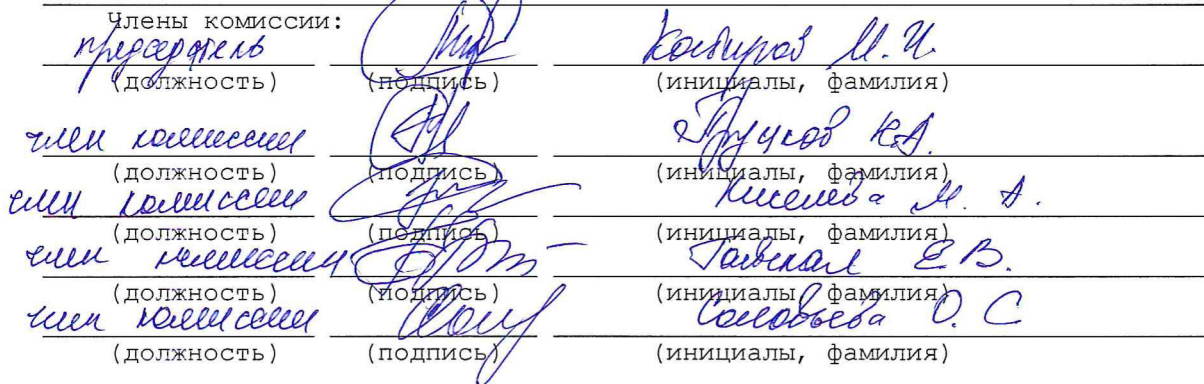 Члены комиссии:
председатель М. И.
(должность) (подпись) (инициалы, фамилия)
член комиссии К.А.
(должность) (подпись) (инициалы, фамилия)
член комиссии Киселева М. А.
(должность) (подпись) (инициалы, фамилия)
член комиссии Е В.
(должность) (подпись) (инициалы, фамилия)
член комиссии Соловьева О. С
(должность) (подпись) (инициалы, фамилия)